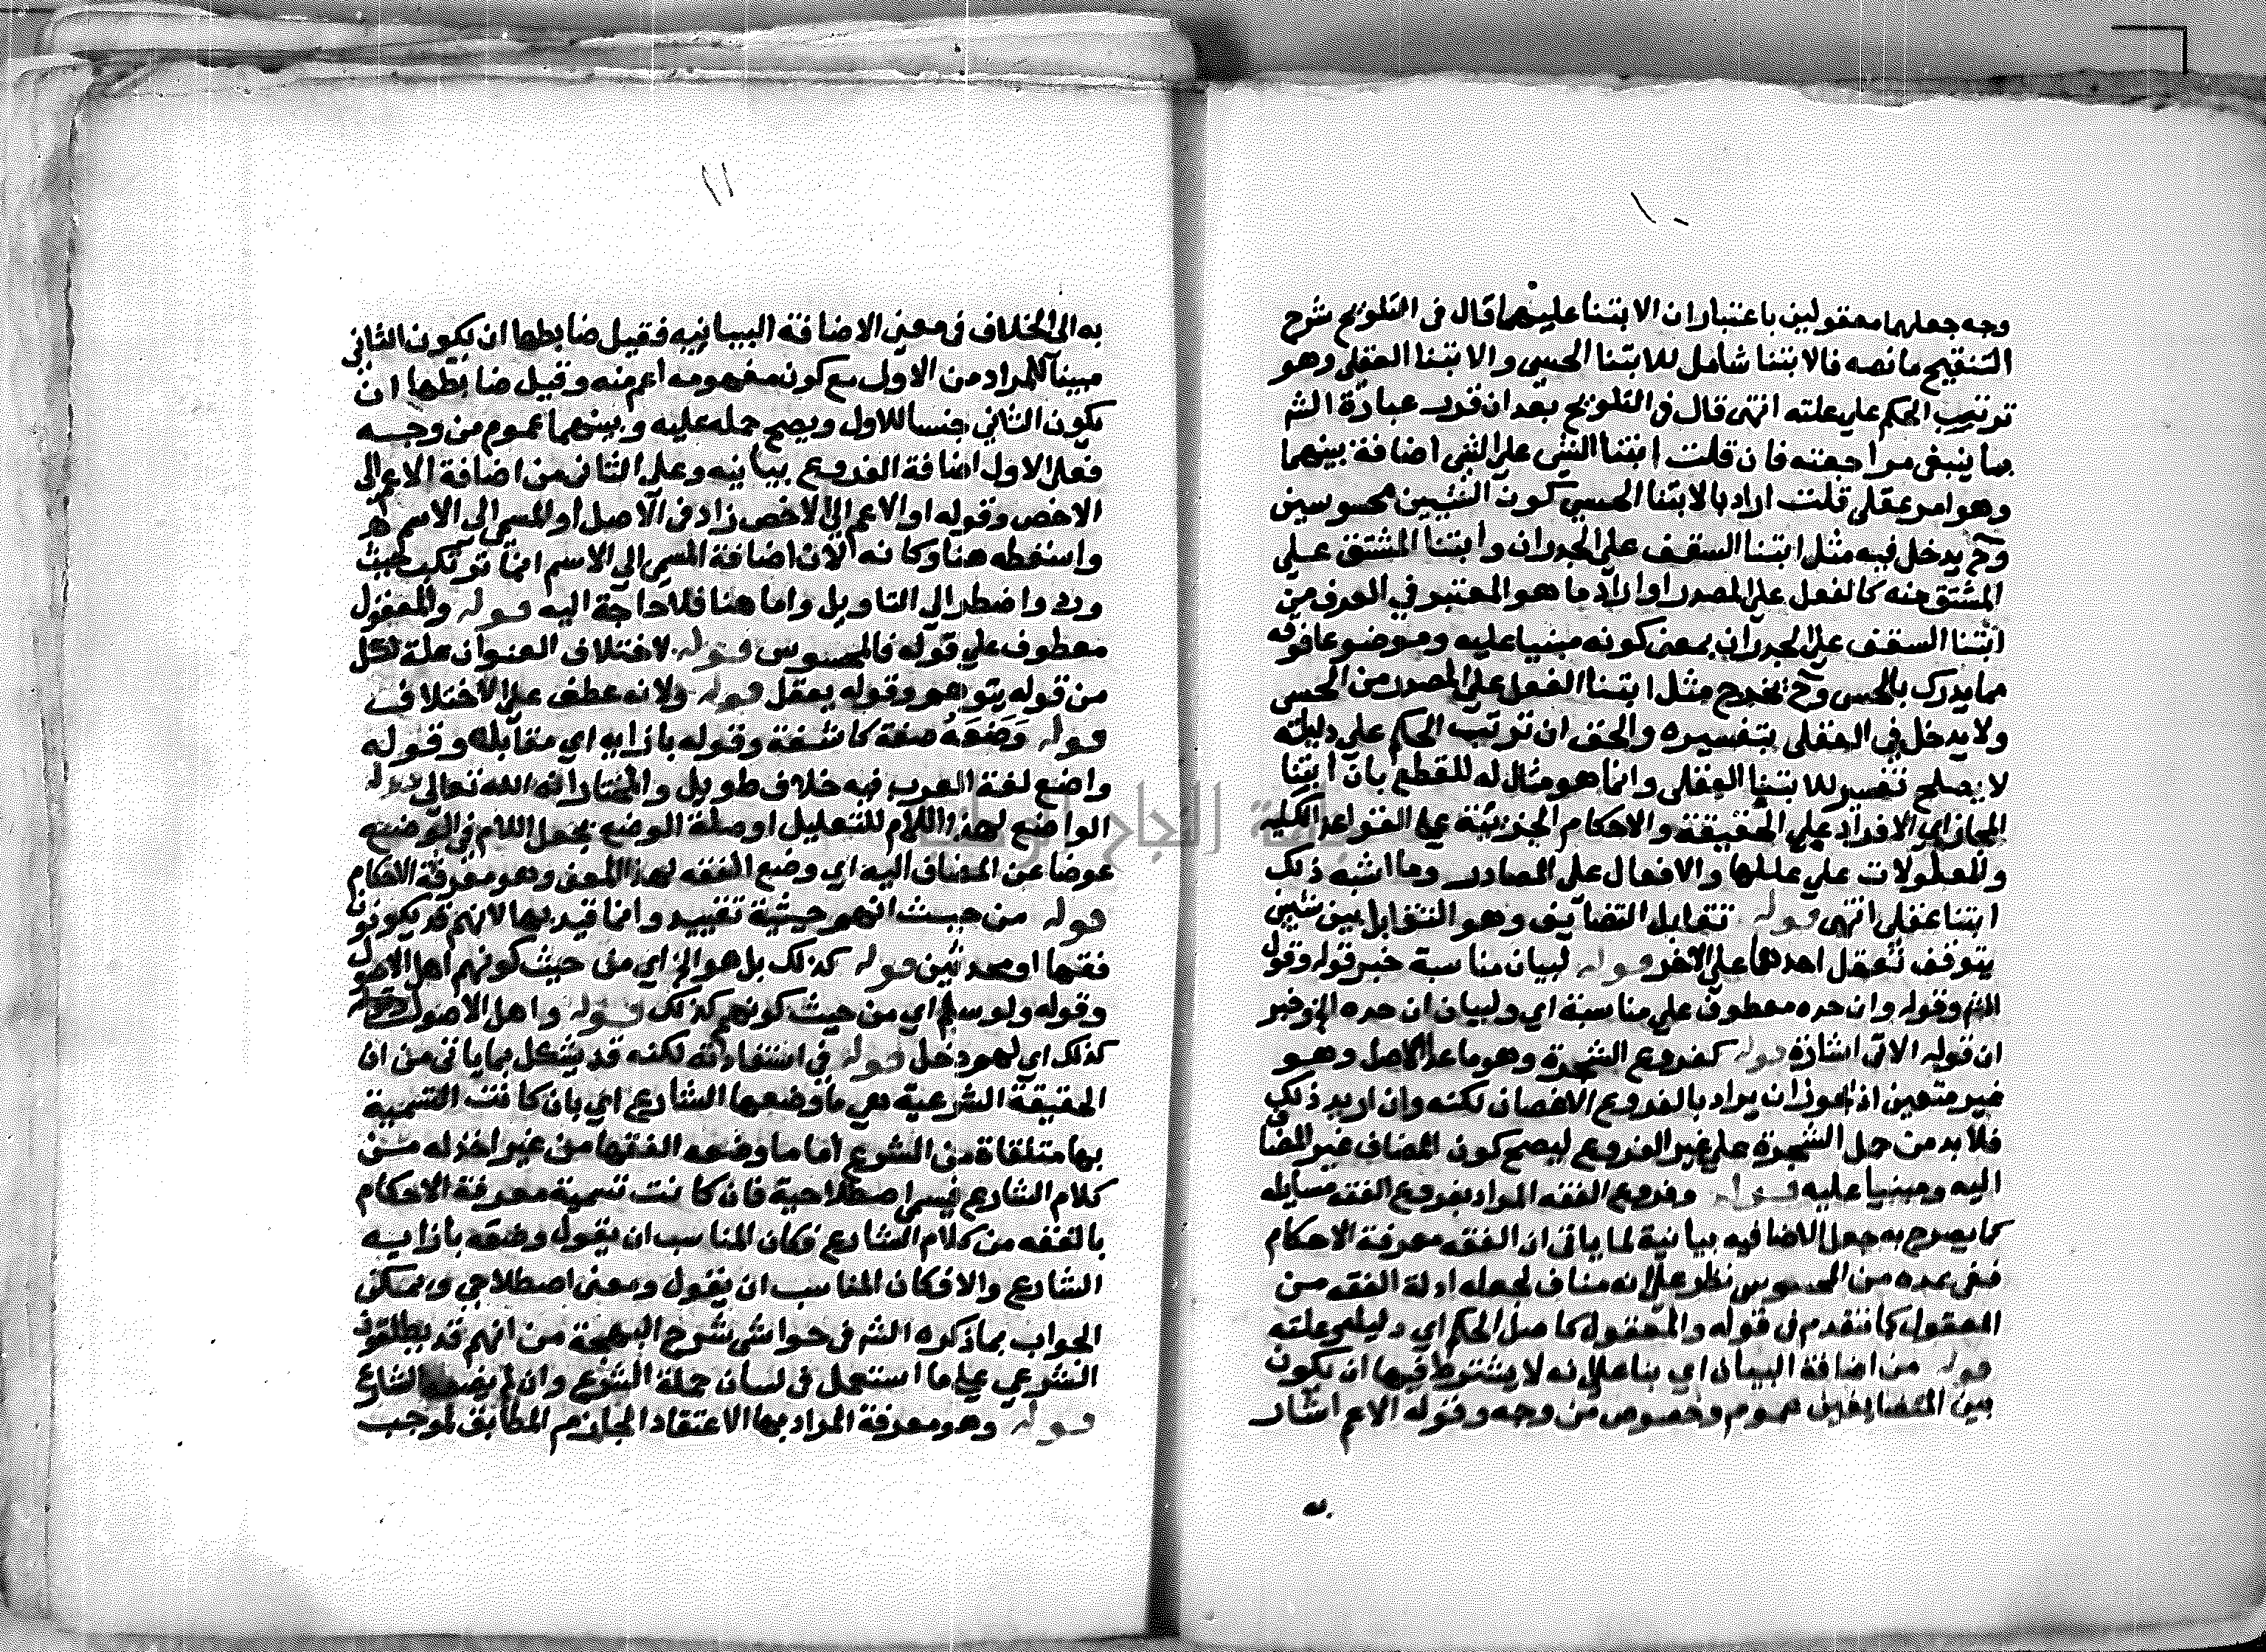 ١٠
وجه جعلهما معقولين باعتبار ان الابتنا عليهما قال في التلويح شرح
التنقيح ما نصه فالابتنا شامل للابتنا الحسي والابتنا العقلي وهو
ترتيب الحكم علي علته انتهي قال في التلويح بعد ان قرر عبارة الشر
بما ينبغي مراجعته فان قلت ابتنا الشي علي الشي اضافة بينهما
وهو امر عقلي قلت اراد بالابتنا الحسي كون الشيين محسوسين
وح يدخل فيه مثل ابتنا السقف علي الجدران وابتنا المشتق علي
المشتق منه كالفعل علي المصدر او اراد ما هو المعتبر في العرف من
ابتنا السقف علي الجدران بمعني كونه مبنيا عليه وموضوعا فوقه
مما يدرك بالحس وح يخرج مثل ابتنا الفعل علي المصدر من الحسي
ولا يدخل في العقلي بتفسيره والحق ان ترتب الحكم علي دليله
لا يصلح تفسيرا للابتنا العقلي وانما هو مثال له للقطع بان ابتنا
المجاز اي الافراد علي الحقيقة والاحكام الجزئية علي القواعد الكليه
والمعلولات علي عللها والافعال علي المصادر وما اشبه ذلك
ابتنا عقلي انتهي قوله تقابل التضايف وهو التقابل بين شيئين
يتوقف تعقل احدهما علي الاخر قوله لبيان مناسبة خبر قوله وقول
الشر وقوله وان حده معطوف علي مناسبة اي ولبيان ان حده الخ وخبر
ان قوله الاتي اشارة قوله كفروع الشجرة وهو ما علا الاصل وهو
غير متعين اذ يجوز ان يراد بالفروع الاغصان لكنه وان اريد ذلك
فلا بد من حمل الشجرة علي غير الفروع ليصح كون المضاف غير المضاف
اليه ومبنيا عليه قوله وفروع الفقه المراد بفروع الفقه مسايله
كما يصرح به جعل الاضافيه بيانية لما ياتي ان الفقه معرفة الاحكام
ففي عده من المحسوس نظر علي انه مناف لجعله ادلة الفقه من
المعقول كما تقدم في قوله والمعقول كاصل الحكم اي دليله وعلته
قوله من اضافة البيان اي بنا علي انه لا يشترط فيها ان يكون
بين المتضايفين عموم وخصوص من وجه وقوله الاعم اشار
به
١١
به الي الخلاف في معني الاضافة البيانيه فقيل ضابطها ان يكون الثاني
مبينا للمراد من الاول مع كون مفهومه اعم منه وقيل ضابطها ان
يكون الثاني جنسا للاول ويصح حمله عليه وبينهما عموم من وجه
فعلي الاول اضافة الفروع بيانيه وعلي الثاني من اضافة الاعم الي
الاخص وقوله او الاعم الي الاخص زاد في الاصل او المسمي الي الاسم
واسقطه هنا وكانه لان اضافة المسمي الي الاسم انما ترتكب حيث
ورد واضطر الي التاويل واما هنا فلا حاجة اليه قوله والمعقول
معطوف علي قوله فالمحسوس قوله لاختلاف العنوان علة لكل
من قوله يتوهم وقوله يعقل قوله ولانه عطف علي الاختلاف
قوله وَضَعَهُ صفة كاشفة وقوله بازايه اي مقابله وقوله
واضع لغة العرب فيه خلاف طويل والمختار انه الله تعالي قوله
الواضع لهذا اللام للتعليل او صلة الوضع بجعل اللام في الوضع
عوضا عن المضاف اليه اي وضع الفقه لهذا المعني وهو معرفة الاحكام
قوله من حيث انهم حيثية تقييد وانما قيد بها لانهم قد يكونون
فقها او محدثين قوله كذلك بل هو الخ اي من حيث كونهم اهل الاصول
وقوله ولو سلم اي من حيث كونهم كذلك قوله واهل الاصول وقوله
كذلك اي لهم دخل قوله في استفادته لكنه قد يشكل بما ياتي من ان
الحقيقة الشرعية هي ما وضعها الشارع اي بان كانت التسمية
بها متلقاة من الشرع اما ما وضعه الفقها من غير اخذ له من
كلام الشارع فيسمي اصطلاحية فان كانت تسمية معرفة الاحكام
بالفقه من كلام الشارع فكان المناسب ان يقول وضعه بازايه
الشارع والا فكان المناسب ان يقول ومعني اصطلاحي ويمكن
الجواب بما ذكره الشر في حواشي شرح البهجة من انهم قد يطلقون
الشرعي علي ما استعمل في لسان حملة الشرع وان لم يضعه الشارع
قوله وهو معرفة المراد بها الاعتقاد الجازم المطابق لموجب